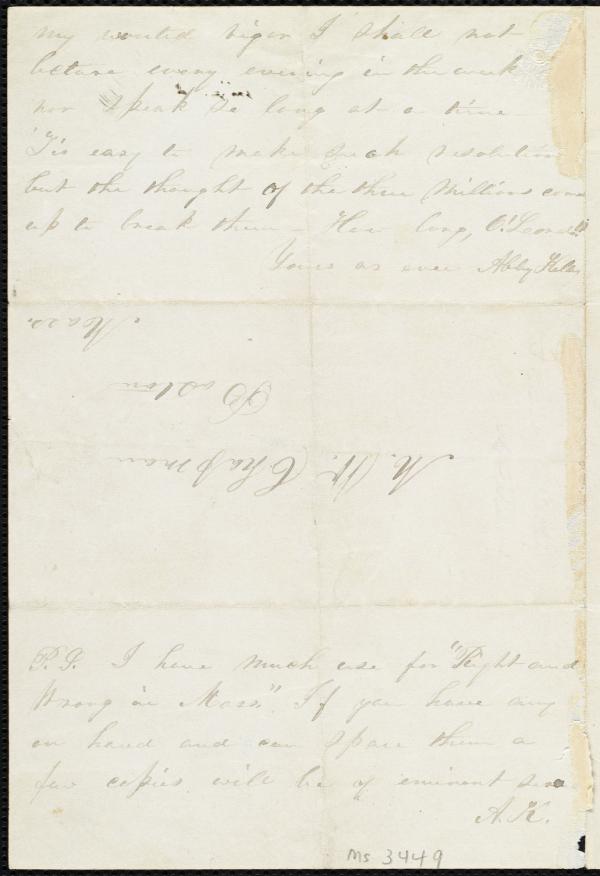 my wonted vigor I shall not
lecture every evening in the week
nor speak so long at a time
'Tis easy to make such resolutions
but the thought of the three millions come
up to break them – How long, O! Lord!!
Yours as ever Abby Kelley
M. W. Chapman
Boston
Mass.
P.S. I have much use for "Right and
Wrong in Mass." If you have any
on hand and can spare them a
few copies will be of eminent
A.K.
Ms 3449